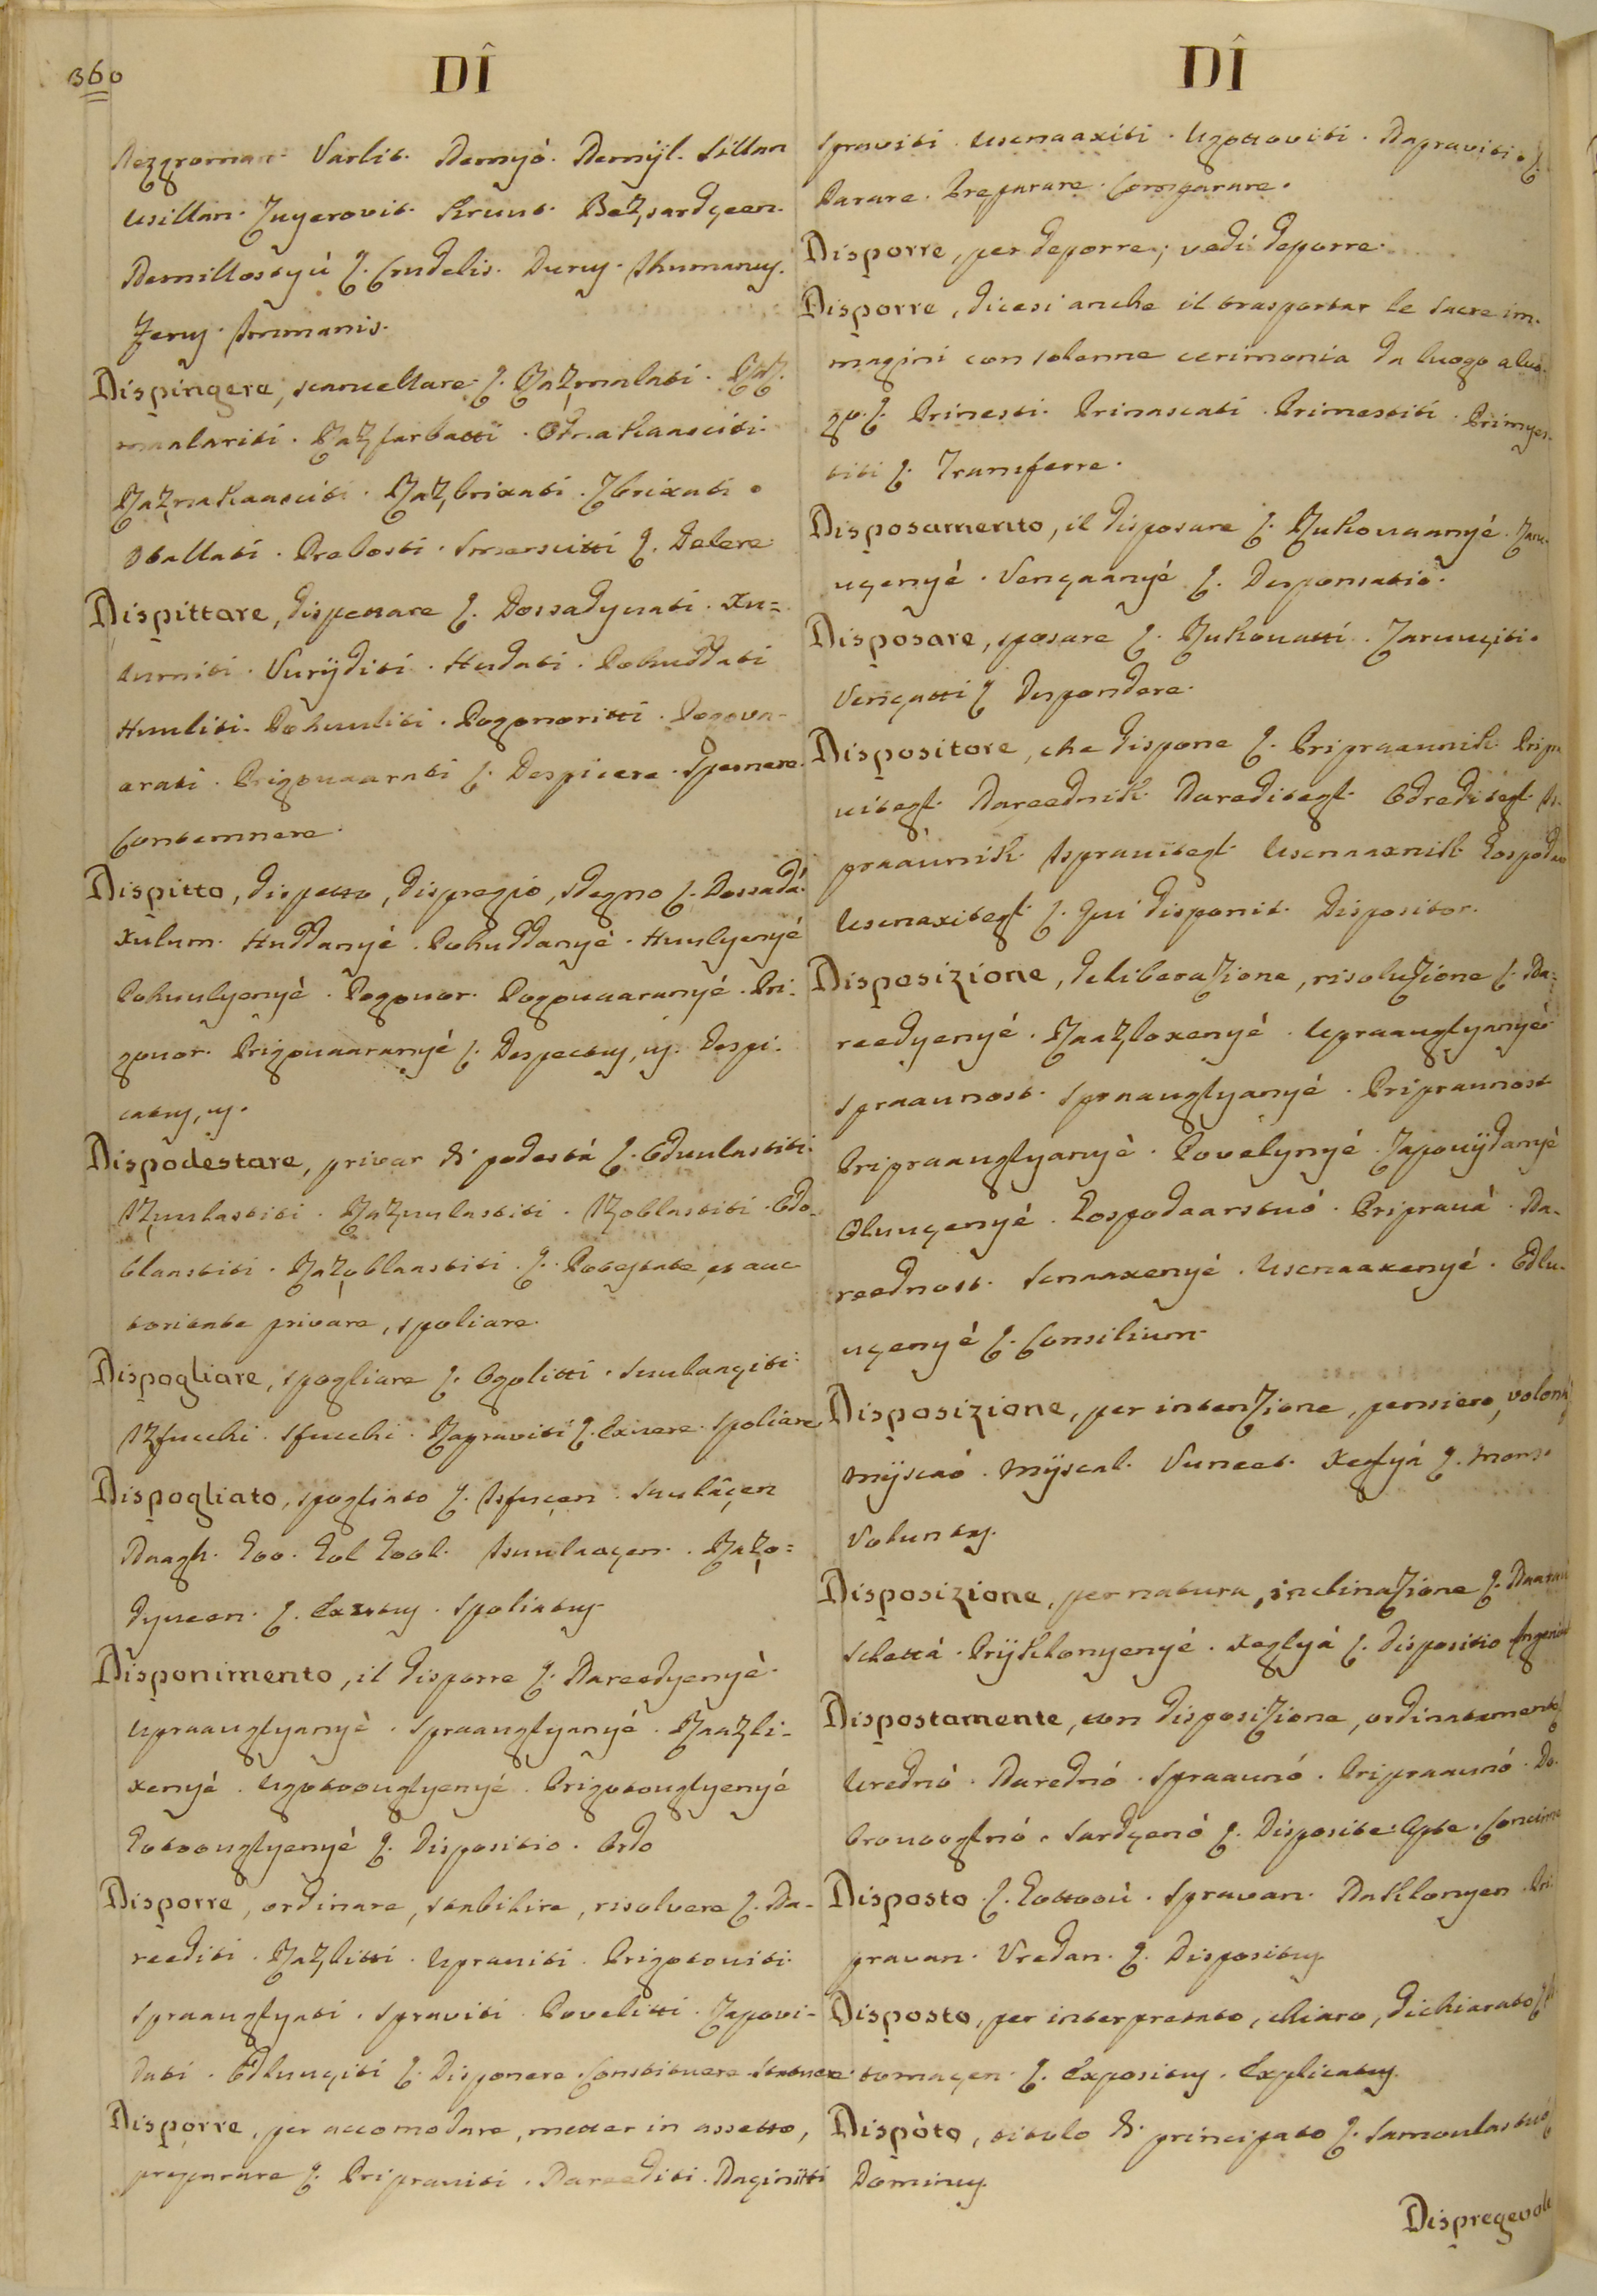 360
DÎ
Nezgroman. Varlit. Nemyó. Nemÿl. Sillan
Usillan. Zuyerovit. Kruut. Bezsardçeen.
Nemillostyú L. Crudelis. Durus. Inhumanus.
Ferus. Immanis.
Dispingere, scancellare L. Razmalati. Raz-
maalariti. Razfarbatti. Otmakaasciti.
Razmakaasciti. Razbrixati. Zbrixati.
Otallati. Prebosti. Smerscitti L. Delere
Dispittare, dispettare L. Dossadyvati. Xu-
hurniti. Vurÿditi. Hudati. Pohuddati
Huuliti. Pohuuliti. Pogovoritti. Pogova-
arati. Prigovaarati L. Despicere. Spernere.
Contemnere.
Dispitto, dispetto, dispregio, sdegno L. Dossadá.
Xulum. Huddanyé. Pohuddanyé. Huulyenyé
Pohuulyenyé. Pogovor. Pogovaaranyé. Pri-
govor. Prigovaaranyé L. Despectus, us. Despi-
catus, us.
Dispodestare, privar di podestá L. Odvulastiti.
Izvulastiti. Razvulastiti. Izoblastiti. Odo-
blaastiti. Razoblaastiti. L. Potestate, et auc
toritate privare, spoliare.
Dispogliare, spogliare L. Ogolitti. Svulaaçiti.
Izsvucchi. Svucchi. Razpraviti L. Exuere. Spoliare
Dispogliato, spogliato L. Isvuçen. Svulâçen
Naagh. Goo. Gol Gool. Isvulaaçen. Razo-
dyveen. L. Exutus. Spoliatus
Disponimento, il disporre L. Nareedyenyé.
Upraauglyanyé. Spraauglyanyé. Raazli-
xenyé. Ugotoouglyenyé. Prigotouglyenyé
Gotoouglyenyé L. Dispositio. Ordo
Disporre, ordinare, stabilire, risolvere L. Na-
reediti. Razlitti. Upraviti. Prigotoviti.
Spraauglyati. Spraviti. Povelitti. Zapovi-
dati. Odluuçiti L. Disponere. Constituere. Statuere.
Disporre, per accomodare, metter in assetto,
preparare L. Pripraviti. Nareediti. Naçinitti
DÎ
Spraviti. Uscnaaxiti. Ugottoviti. Napraviti. L.
Parare. Preparare. Comparare.
Disporre, per deporre; vedi deporre.
Disporre, dicesi anche il trasportar le sacre im-
magini con solenne cerimonia da luogo a luo-
go. L. Prinesti. Prinascati. Primestiti. Primyes-
titi L. Transferre.
Disposamento, il disposare L. Rukovaanyé. Zaru-
uçenyé. Vençaanyé L. Desponsatio.
Disposare, sposare L. Rukovatti. Zaruuçiti.
Vençatti L Despondere.
Dispositore, che dispone L. Pripraavnik
vitegl. Nareednik. Nareditegl. Odreditegl.
praavnik. Ispravitegl. Uscnaaxnik.
Uscnaxitegl L. Qui disponit. Dispositor.
Disposizione, deliberazione, risoluzione L. Na-
reedyenyé. Raazloxenyé. Upraauglyanyé.
Spraavnost. Spraauglyanyé. Pripraunost
Pripraauglyanyé. Povelynyé. Zapovÿdanyé
Oluuçenyé. Gospodaarstvó. Pripravá. Na-
reednost. Scnaaxenyé. Uscnaaxenyé. Odlu-
uçenyé L. Consilium.
Disposizione, per intenzione, pensiero, volontá
Mÿscaó. Mÿscal. Vuneet. Xeglyá L. Mens.
Voluntas.
Disposizione, per natura, inclinazione L.
Schettá. Prÿklonyenyé. Xeglyá L. Dispositio
Dispostamente, con disposizione, ordinatamente
Urednó. Narednó. Spraavnó. Pripraavnó. Do-
brovooglnó. Sardçenó L. Disposite. Apte.
Disposto L. Gottoov. Spravan. Naklonyen. Pri-
pravan. Vredan. L. Dispositus
Disposto, per interpretato, chiaro, dichiarato
tomaçen. L. Expositus. Explicatus
Dispóto, titolo di principato L. Samovlastvó
Dominus
Dispregevole